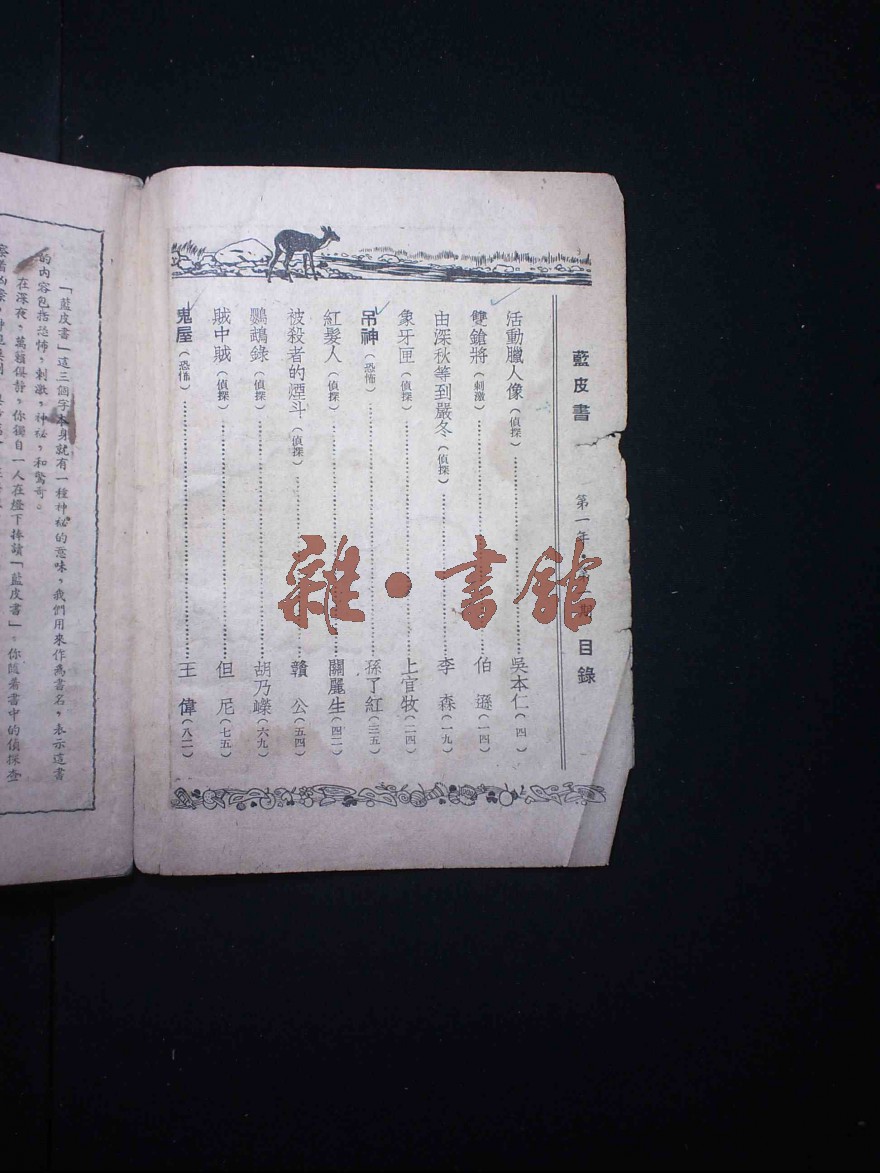 藍皮書 第一年 期 目錄
活動臘人像(偵探)……吳本仁(四)
雙鎗將(刺激)……伯遜(一四)
由深秋等到嚴冬(偵探)……李森(一九)
象牙匣(偵探)……上官牧(二四)
吊神(恐怖)……孫了紅(三五)
紅髮人(偵探)……關麗生(四二)
被殺者的煙斗(偵探)……贛公(五四)
鸚鵡錄(偵探)……胡乃嶸(六九)
賊中賊(偵探)……但尼(七五)
鬼屋(恐怖)……王偉(八二)
雜·書館
「藍皮書」這三個字本身就有一種神祕的意味,我們用來作為書名,表示這書
的內容包括恐怖,刺激,神祕,和驚奇。
在深夜,萬籟俱靜,你獨自一人在燈下捧讀「藍皮書」,你隨著書中的偵探查